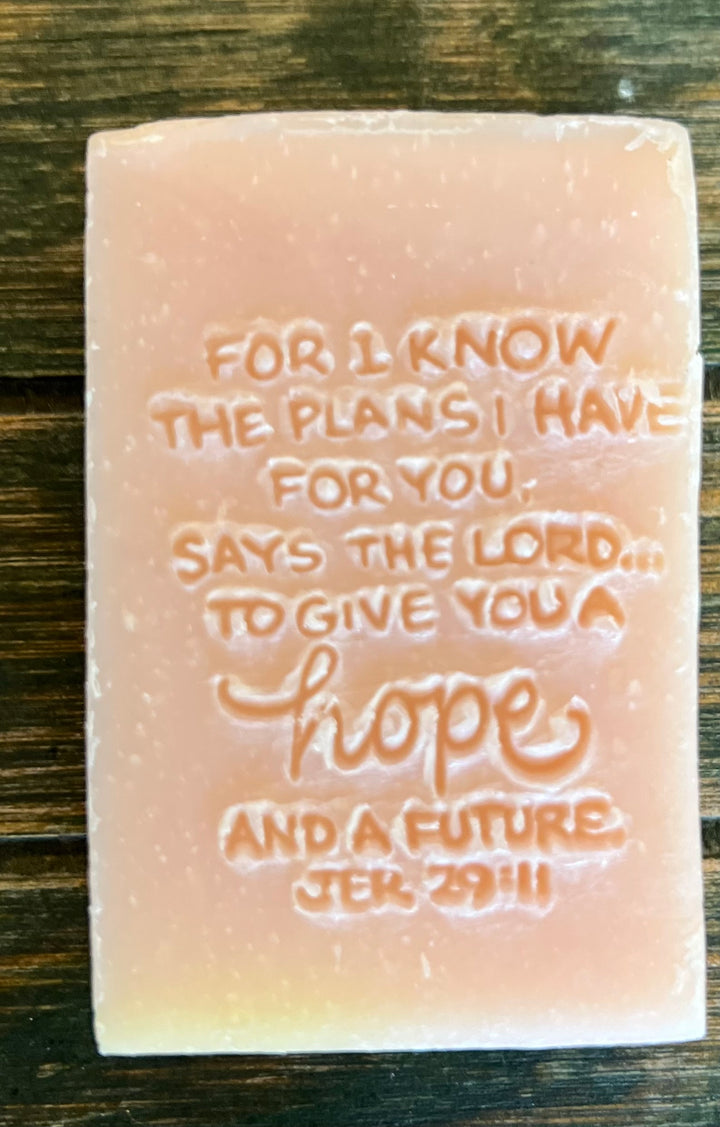 FOR I KNOW
THE PLANS I HAVE
FOR YOU,
SAYS THE LORD...
TO GIVE YOU A
hope
AND A FUTURE.
JER 29:11